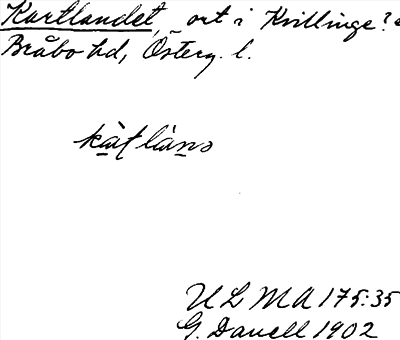 Kartlandet, ort i Kvillinge?
Bråbo hd, Österg. l.
ULMA 175:35
G. Danell 1902